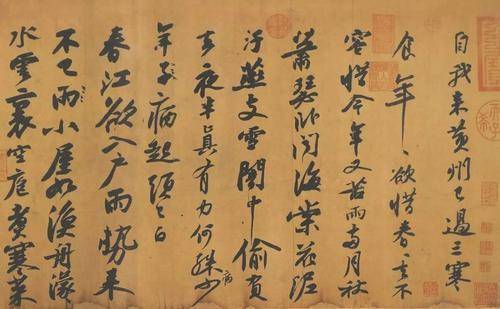 自我来黄州已過三寒
食年〻欲惜春〻去不
容惜今年又苦雨兩月秋
蕭瑟卧聞海棠花泥
汙燕支雪闇中偷負
去夜半真有力何殊病少
年子病起須已白
春江欲入户雨勢來
不已雨小屋如漁舟濛〻
水雲裏空庖煮寒菜